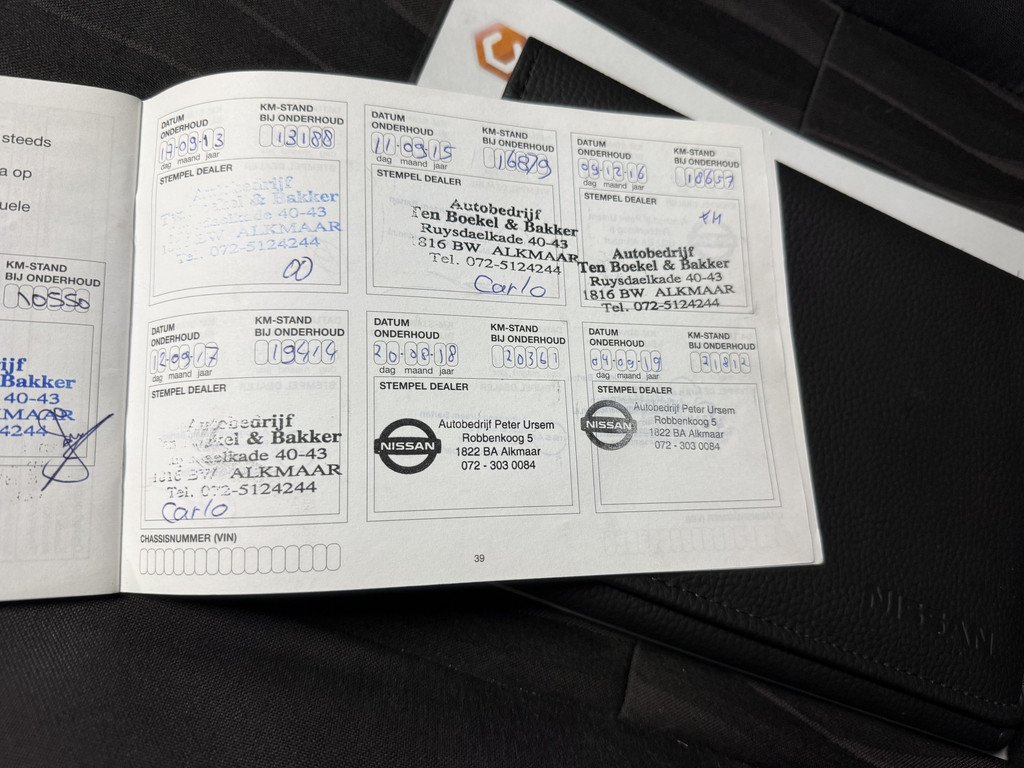 steeds
a op
uele
KM-STAND
BIJ ONDERHOUD
10550
ijf
Bakker
40-43
MAAR
4244
DATUM
ONDERHOUD
KM-STAND
BIJ ONDERHOUD
17-09-13
13188
dag maand jaar
STEMPEL DEALER
Autobedrijf
Ten Boekel & Bakker
Ruysdaelkade 40-43
1816 BW ALKMAAR
Tel. 072-5124244
DATUM
ONDERHOUD
KM-STAND
BIJ ONDERHOUD
11-09-15
16879
dag maand jaar
STEMPEL DEALER
Autobedrijf
Ten Boekel & Bakker
Ruysdaelkade 40-43
1816 BW ALKMAAR
Tel. 072-5124244
Carlo
DATUM
ONDERHOUD
KM-STAND
BIJ ONDERHOUD
09-12-16
18657
dag maand jaar
STEMPEL DEALER
Autobedrijf
Ten Boekel & Bakker
Ruysdaelkade 40-43
1816 BW ALKMAAR
Tel. 072-5124244
DATUM
ONDERHOUD
KM-STAND
BIJ ONDERHOUD
12-09-17
19414
dag maand jaar
STEMPEL DEALER
Autobedrijf
Boekel & Bakker
sdaelkade 40-43
1816 BW ALKMAAR
Tel. 072-5124244
Carlo
DATUM
ONDERHOUD
KM-STAND
BIJ ONDERHOUD
20-08-18
20361
dag maand jaar
STEMPEL DEALER
NISSAN
Autobedrijf Peter Ursem
Robbenkoog 5
1822 BA Alkmaar
072 - 303 0084
DATUM
ONDERHOUD
KM-STAND
BIJ ONDERHOUD
04-09-19
21812
dag maand jaar
STEMPEL DEALER
NISSAN
Autobedrijf Peter Ursem
Robbenkoog 5
1822 BA Alkmaar
072 - 303 0084
CHASSISNUMMER (VIN)
39
NISSAN